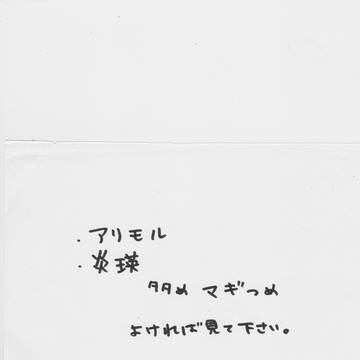 ・アリモル
・炎瑛
多め マギつめ
よければ見て下さい。